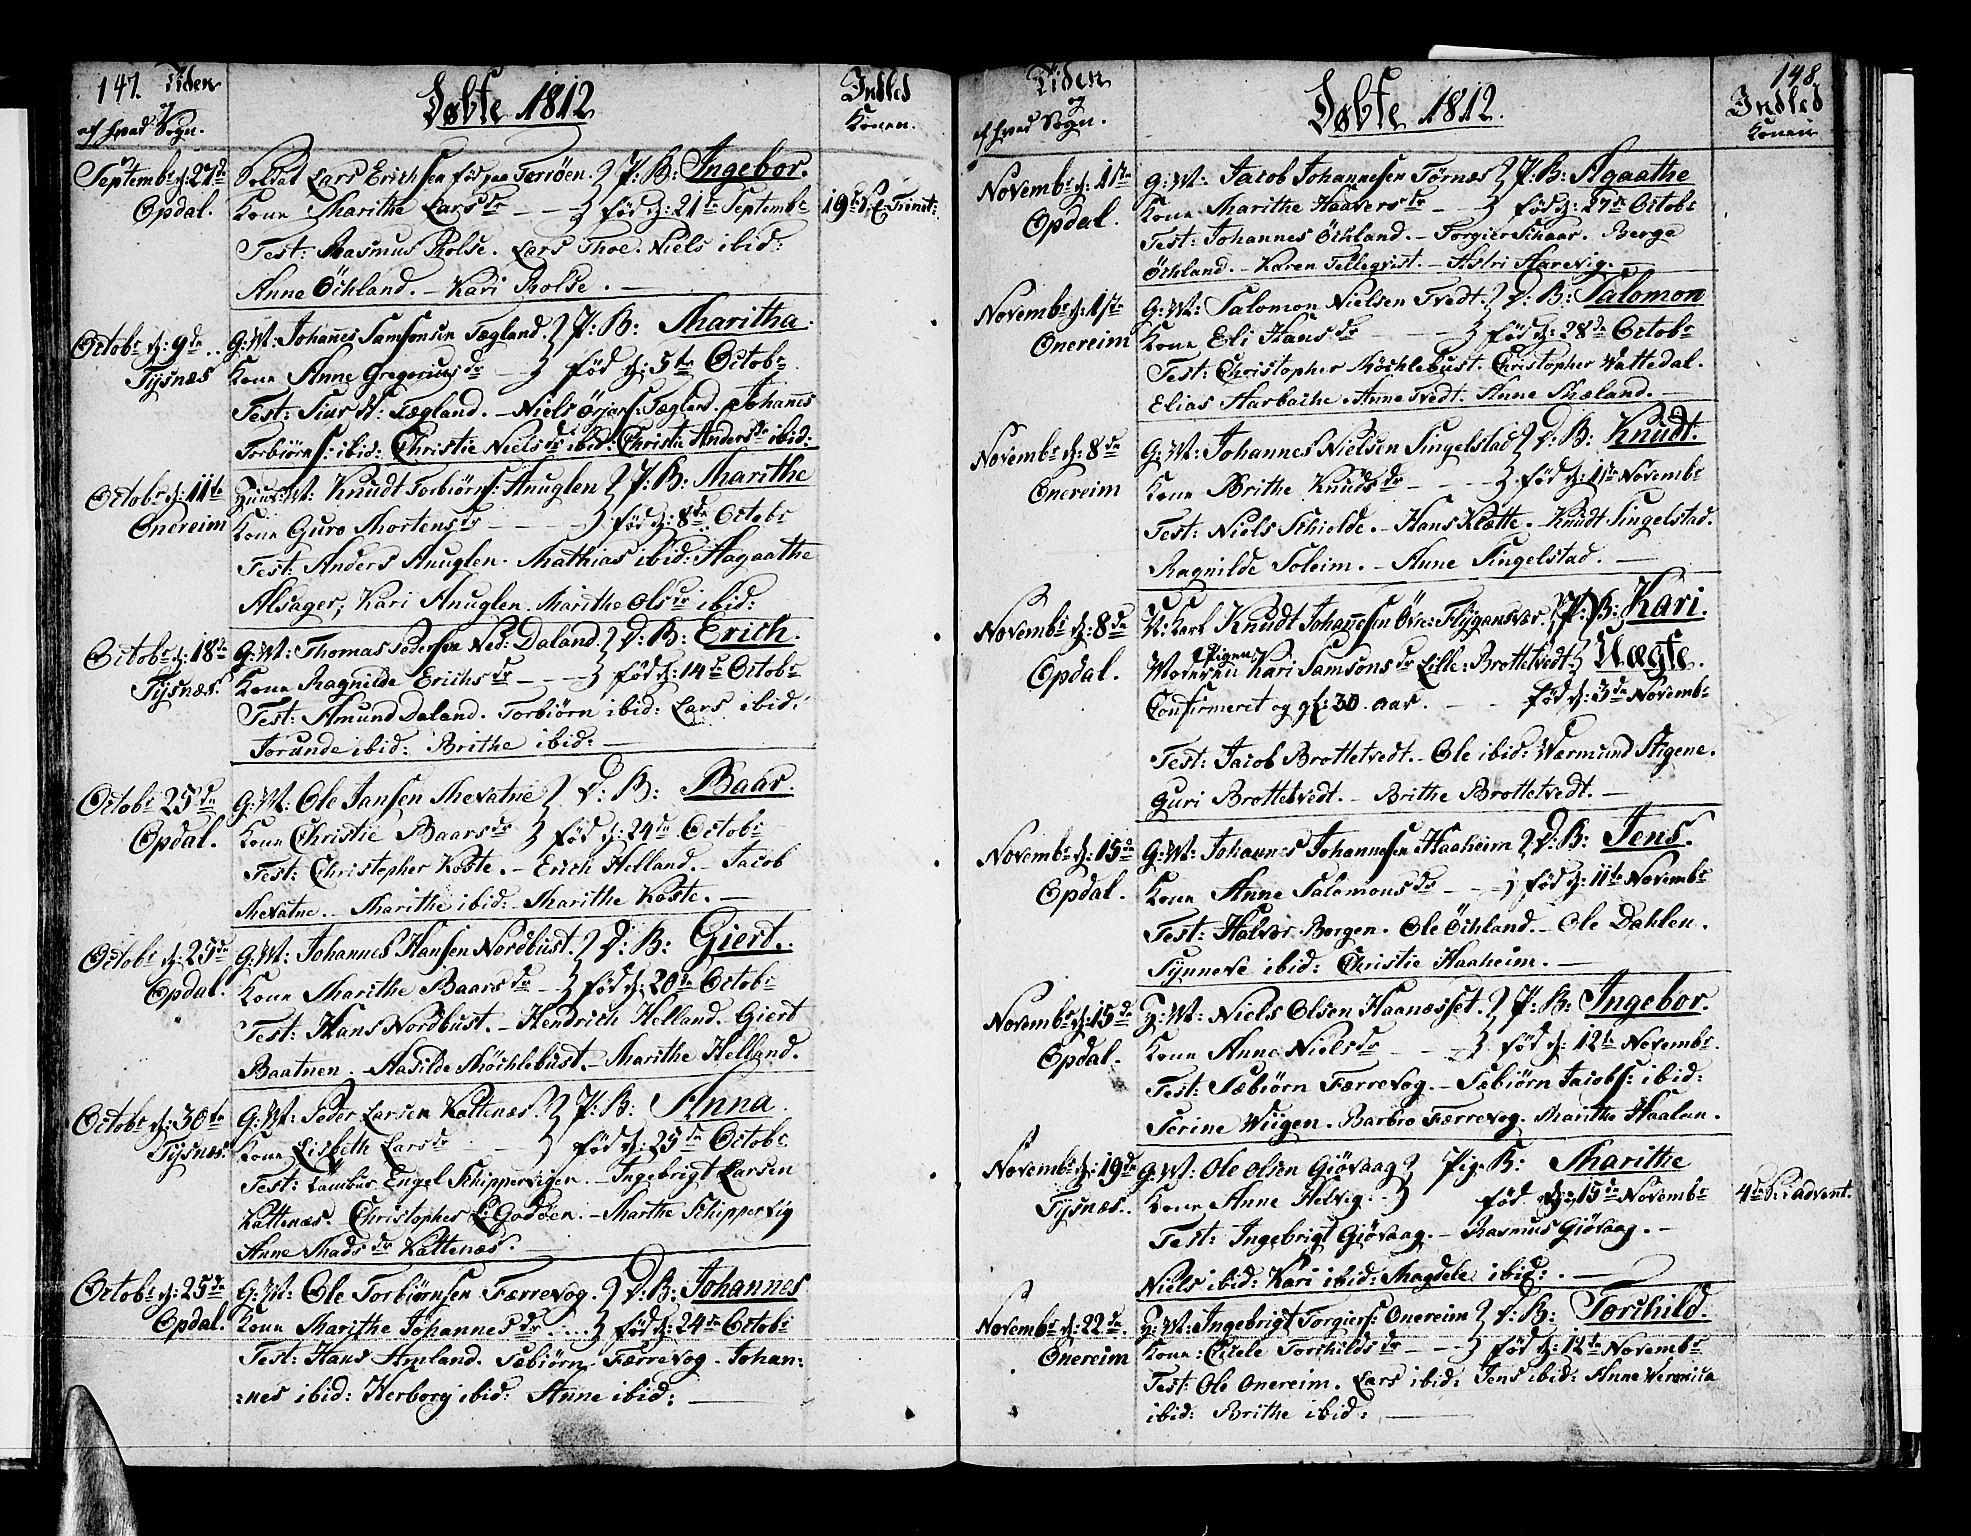 147. Tiden
og
af hvad Sogn.
Døbte 1812
Indled
Konen.
Septembr d: 27de
Opdal.
Soldat Lars Erichsen fød paa Færøen. P: B: Ingebor.
Kone Marithe Larsdr - - født d: 21de Septembr
19de S. E. Trinit:
Test: Rasmus Rolse. Lars Thoe. Niels ibid:
Anne Öchland. - Kari Rolse. -
Octobr d: 9de
Tysnæs
G: M: Johanes Samsonsen Tægland. P: B: Maritha.
Kone Anne Gregoriusdr - fød d: 5te Octobr
Test: Siur N: Tægland. - Niels Örjans: Tægland. Johanes
Torbiørns: ibid: Christie Nielsdr ibid: Christi Andersdr ibid:
Octobr d: 11te
Onereim
Huus: M: Knudt Torbiørns: Anuglen P: B: Marithe
Kone Guro Mortensdr - - - fød d: 8de Octobr
Test: Anders Anuglen. Mathias ibid: Aagaathe
Alsager, Kari Anuglen. Marithe Olsdr ibid:
Octobr d: 18de
Tysnæs.
G: M: Thomas Pedersen Ned: Daland. D: B: Erich.
Kone Ragnilde Erichsdr - - - fød d: 14de Octobr
Test: Amund Daland. Torbiörn ibid: Lars ibid:
Jorunde ibid: Brithe ibid: -
Octobr 25de
Opdal.
G: M: Ole Jansen Mevatne D: B: Baar.
Kone Christie Baarsdr fød d: 24de Octobr
Test: Christopher Koste. - Erich Helland. - Jacob
Mevatne. - Marithe ibid: Marithe Koste. -
Octobr d: 25de
Opdal.
G: M: Johannes Hansen Nordbust. D: B: Giert.
Kone Marithe Baarsdr - fød d: 20de Octobr
Test: Hans Nordbust. - Hendrich Helland. Giert
Baatnen. - Aasilde Möchlebust. - Marithe Helland.
Octobr d: 30te
Tysnæs.
G: M: Peder Larsen Kattenæs. P: B: Anna.
Kone Lisbeth Larsdr - - fød d: 25de Octobr
Test: Lambus Engel Schippervigen. - Ingebrigt Larsen
Kattenæs. Christopher L: Godöen. - Marthe Schippervig
Anne Madsdr Kattenæs. -
Octobr d: 25de
Opdal.
G: M: Ole Torbiörnsen Færrevog. D: B: Johannes
Kone Marithe Johannesdr ... fød d: 24de Octobr
Test: Hans Amland. Sæbiörn Færrevog. Johan=
=nes ibid: Herborg ibid: Anne ibid: -
Tiden
og
af hvad Sogn.
Døbte 1812.
148.
Indled
Konen
Novembr d: 1ste
Opdal.
G: M: Jacob Johannesen Törnæs P: B: Agaathe
Kone Marithe Haaversdr - fød d: 27de Octobr
Test: Johannes Öchland. - Torgier Schaar. Berge
Öchland. - Karen Telleqvist. - Astri Aarevig.
Novembr d: 1ste
Onereim
G: M: Salomon Nielsen Tvedt. D: B: Salomon
Kone Eli Hansdr - - - fød d: 28de Octobr
Test: Christopher Möchlebust. Christopher Vattedal.
Elias Aarbache. Anne Tvedt. Anne Mæland. -
Novembr d: 8de
Onereim
G: M: Johannes Nielsen Singelstad D: B: Knudt.
Kone Brithe Knudsdr - - - fød d: 1ste Novembr
Test: Niels Schielde. - Hans Klætte. - Knudt Singelstad.
Ragnilde Soleim. - Anne Singelstad. -
Novembr d: 8de
Opdal.
U: Karl Knudt Johannesen Övre: Flygansvær. P: B: Kari.
Moderen Pigen Kari Samsonsdr Lille: Brottetvedt Uægte.
Confirmeret og gl: 30 aar. - - fød d: 3de Novembr
Test: Jacob Brottetvedt. - Ole ibid: Wærmund Stigene.
Guri Brottetvedt. - Brithe Brottetvedt. -
Novembr d: 15de
Opdal.
G: M: Johannes Johannesen Haaheim D: B: Jens.
Kone Anne Salomonsdr - - fød d: 11te Novembr
Test: Halvor Borgen. Ole Öchland. - Ole Dahlen.
Synneve ibid: Christie Haaheim. -
Novembr d: 15de
Opdal.
H: M: Niels Olsen Haanæsset. P: B: Ingebor.
Kone Anne Nielsdr - - fød d: 12te Novembr.
Test: Sæbiörn Færrevog. - Sæbiörn Jacobs: ibid:
Serine Wiigen. Barbro Færrevog. Marithe Haalan.
Novembr d: 19de
Tysnæs.
G: M: Ole Olsen Giövaag Pig: B: Marithe
Kone Anne Helvig. fød d: 15de Novembr
4de S. i advent.
Test: Ingebrigt Giövaag. - Rasmus Giövaag. -
Niels ibid: Kari ibid: Magdele ibid: . -
Novembr d: 22de.
Onereim
H: M: Ingebrigt Torgiers: Onereim D: B: Torchild.
Kone: Citele Torchildsdr - - fød d: 12te Novembr
Test: Ole Onereim. Lars ibid: Jens ibid: Anne Veronica
ibid: Brithe ibid: -